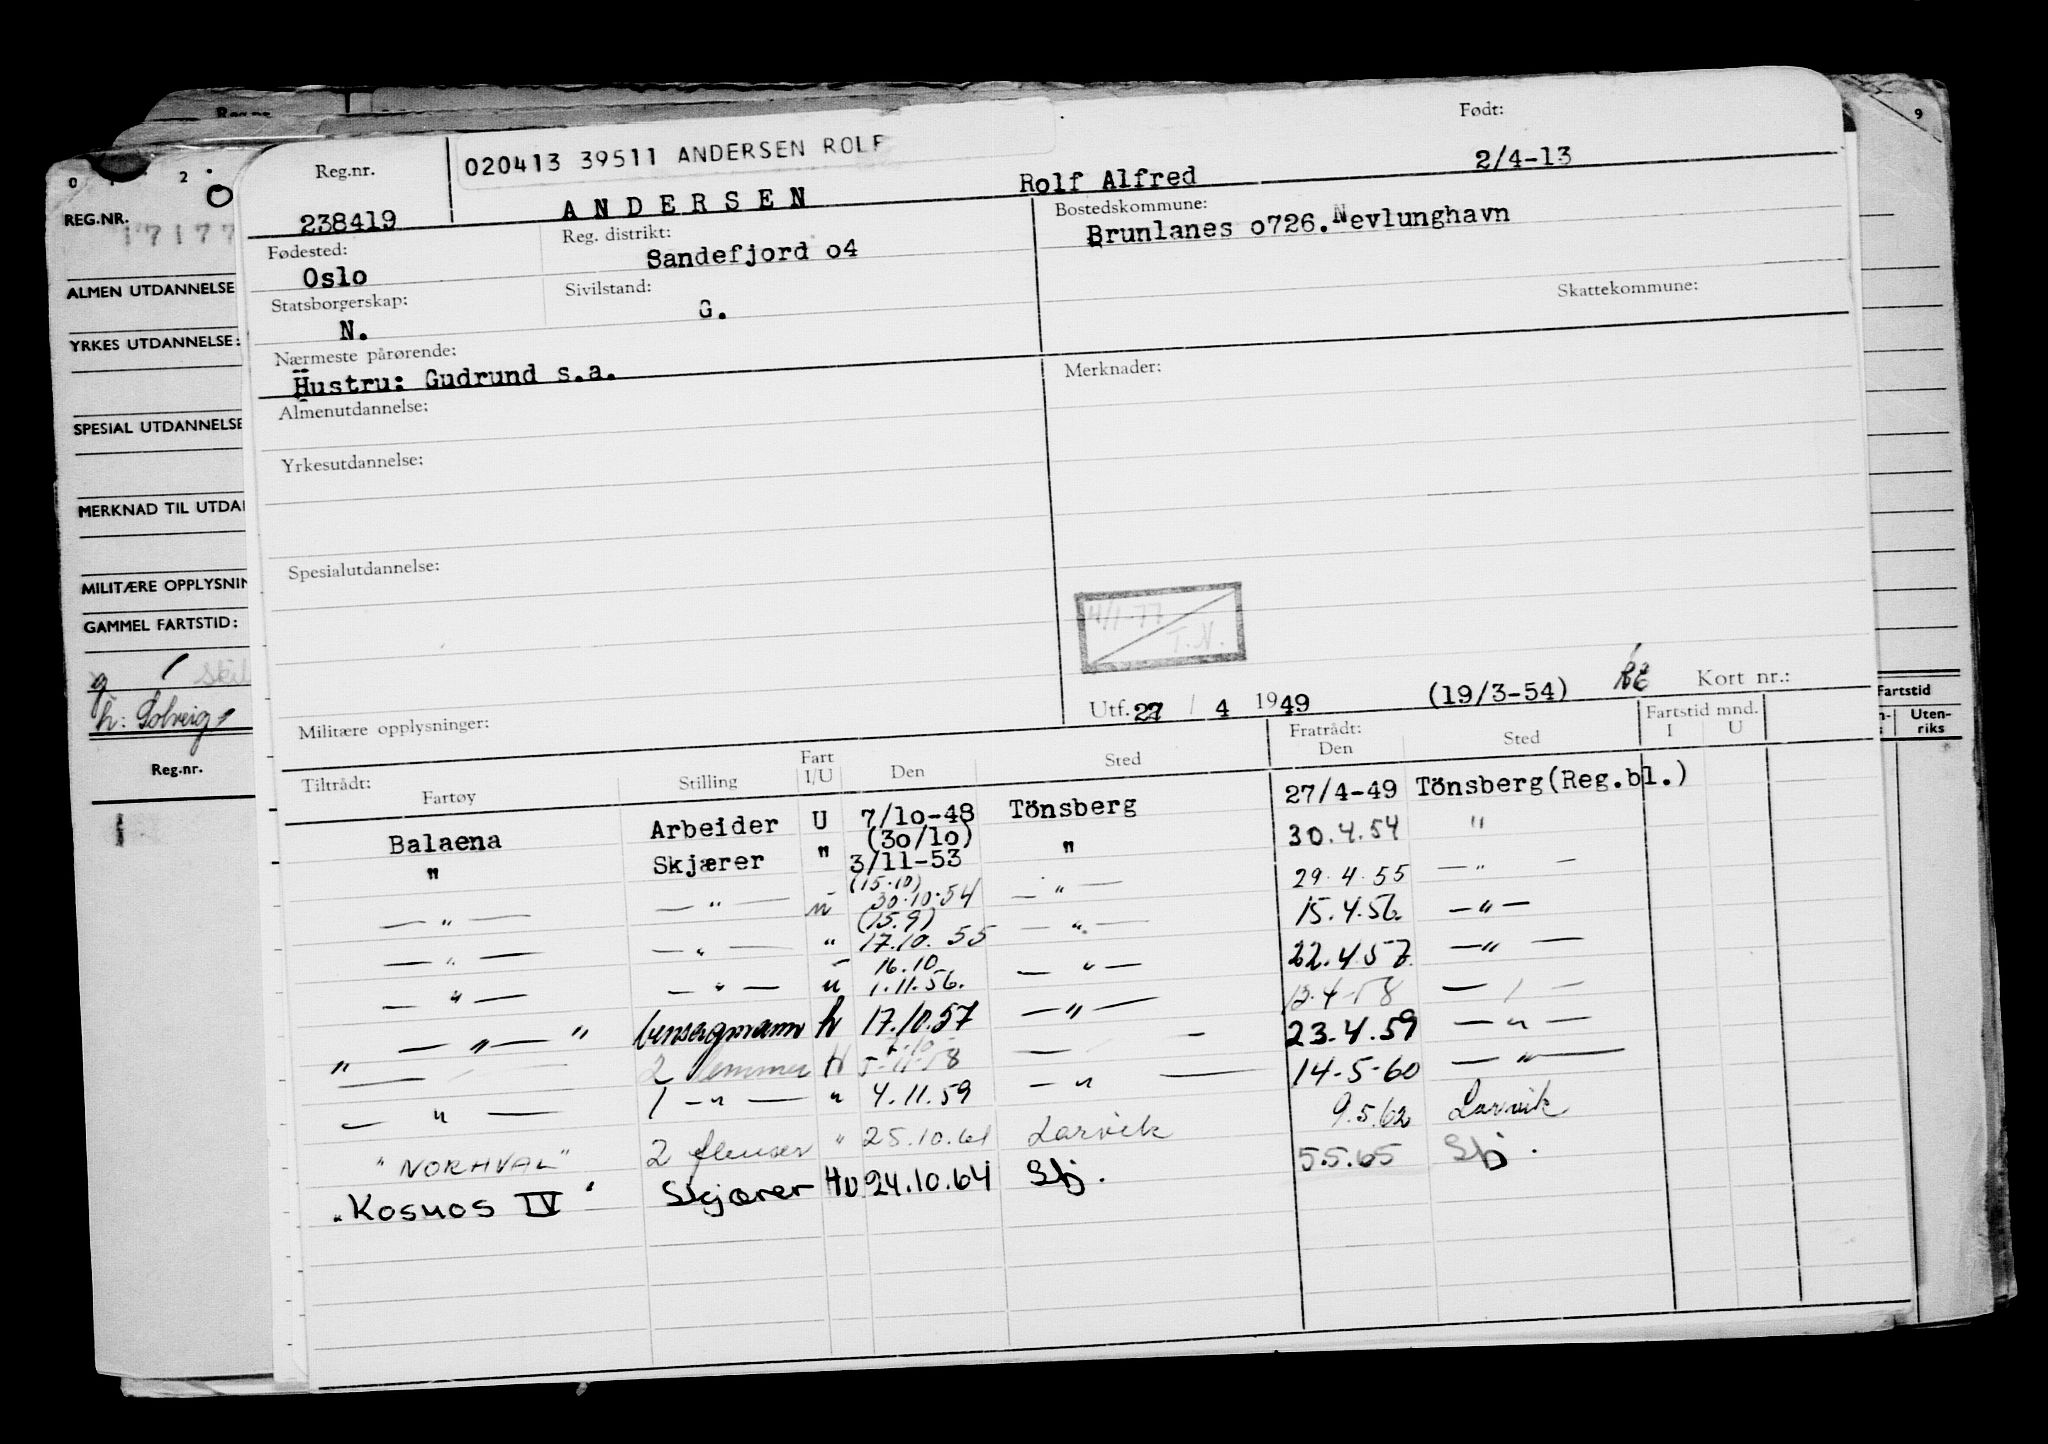 Født:
Reg.nr. 020413 39511 ANDERSEN ROLF
238419 ANDERSEN Rolf Alfred 2/4-13
Fødested: Reg. distrikt: Bostedskommune:
Oslo Sandefjord o4 Brunlanes o726. Nevlunghavn
Statsborgerskap: Sivilstand: Skattekommune:
N. G.
Nærmeste pårørende:
Hustru: Gudrund s.a.
Almenutdannelse: Merknader:
Yrkesutdannelse:
Spesialutdannelse:
T.N.
Militære opplysninger: Utf. 27 / 4 1949 (19/3-54) Kort nr.:
Tiltrådt: Fratrådt: Fartstid mnd.
Fartøy Stilling Fart I/U Den Sted Den Sted I U
Balaena Arbeider U 7/10-48 Tönsberg 27/4-49 Tönsberg(Reg.bl.)
(30/10)
" Skjærer " 3/11-53 " 30.4.54 "
(15.10)
— " — — " — u 30.10.54 — " — 29.4.55 — " —
(15.9)
— " — — " — " 17.10.55 — " — 15.4.56 — " —
16.10
— " — — " — u 1.11.56. — " — 22.4.57 — " —
— " — " h 17.10.57 — " — 13.4.58 —
" — 2 H 5.11.58 — 23.4.59 — " —
— " — 1 — " — " 4.11.59 — " — 14-5-60 — " —
"NORHVAL" 2 flenser " 25.10.61 Larvik 9.5.62 Larvik
"Kosmos IV" Skjærer HU 24.10.64 Sfj. 5.5.65 Sfj.
REG.NR.
17177
ALMEN UTDANNELSE
YRKES UTDANNELSE:
SPESIAL UTDANNELSE
MERKNAD TIL UTDA
MILITÆRE OPPLYSNIN
GAMMEL FARTSTID:
g
h: Solveig
Reg.nr.
9
Fartstid
Uten-
riks